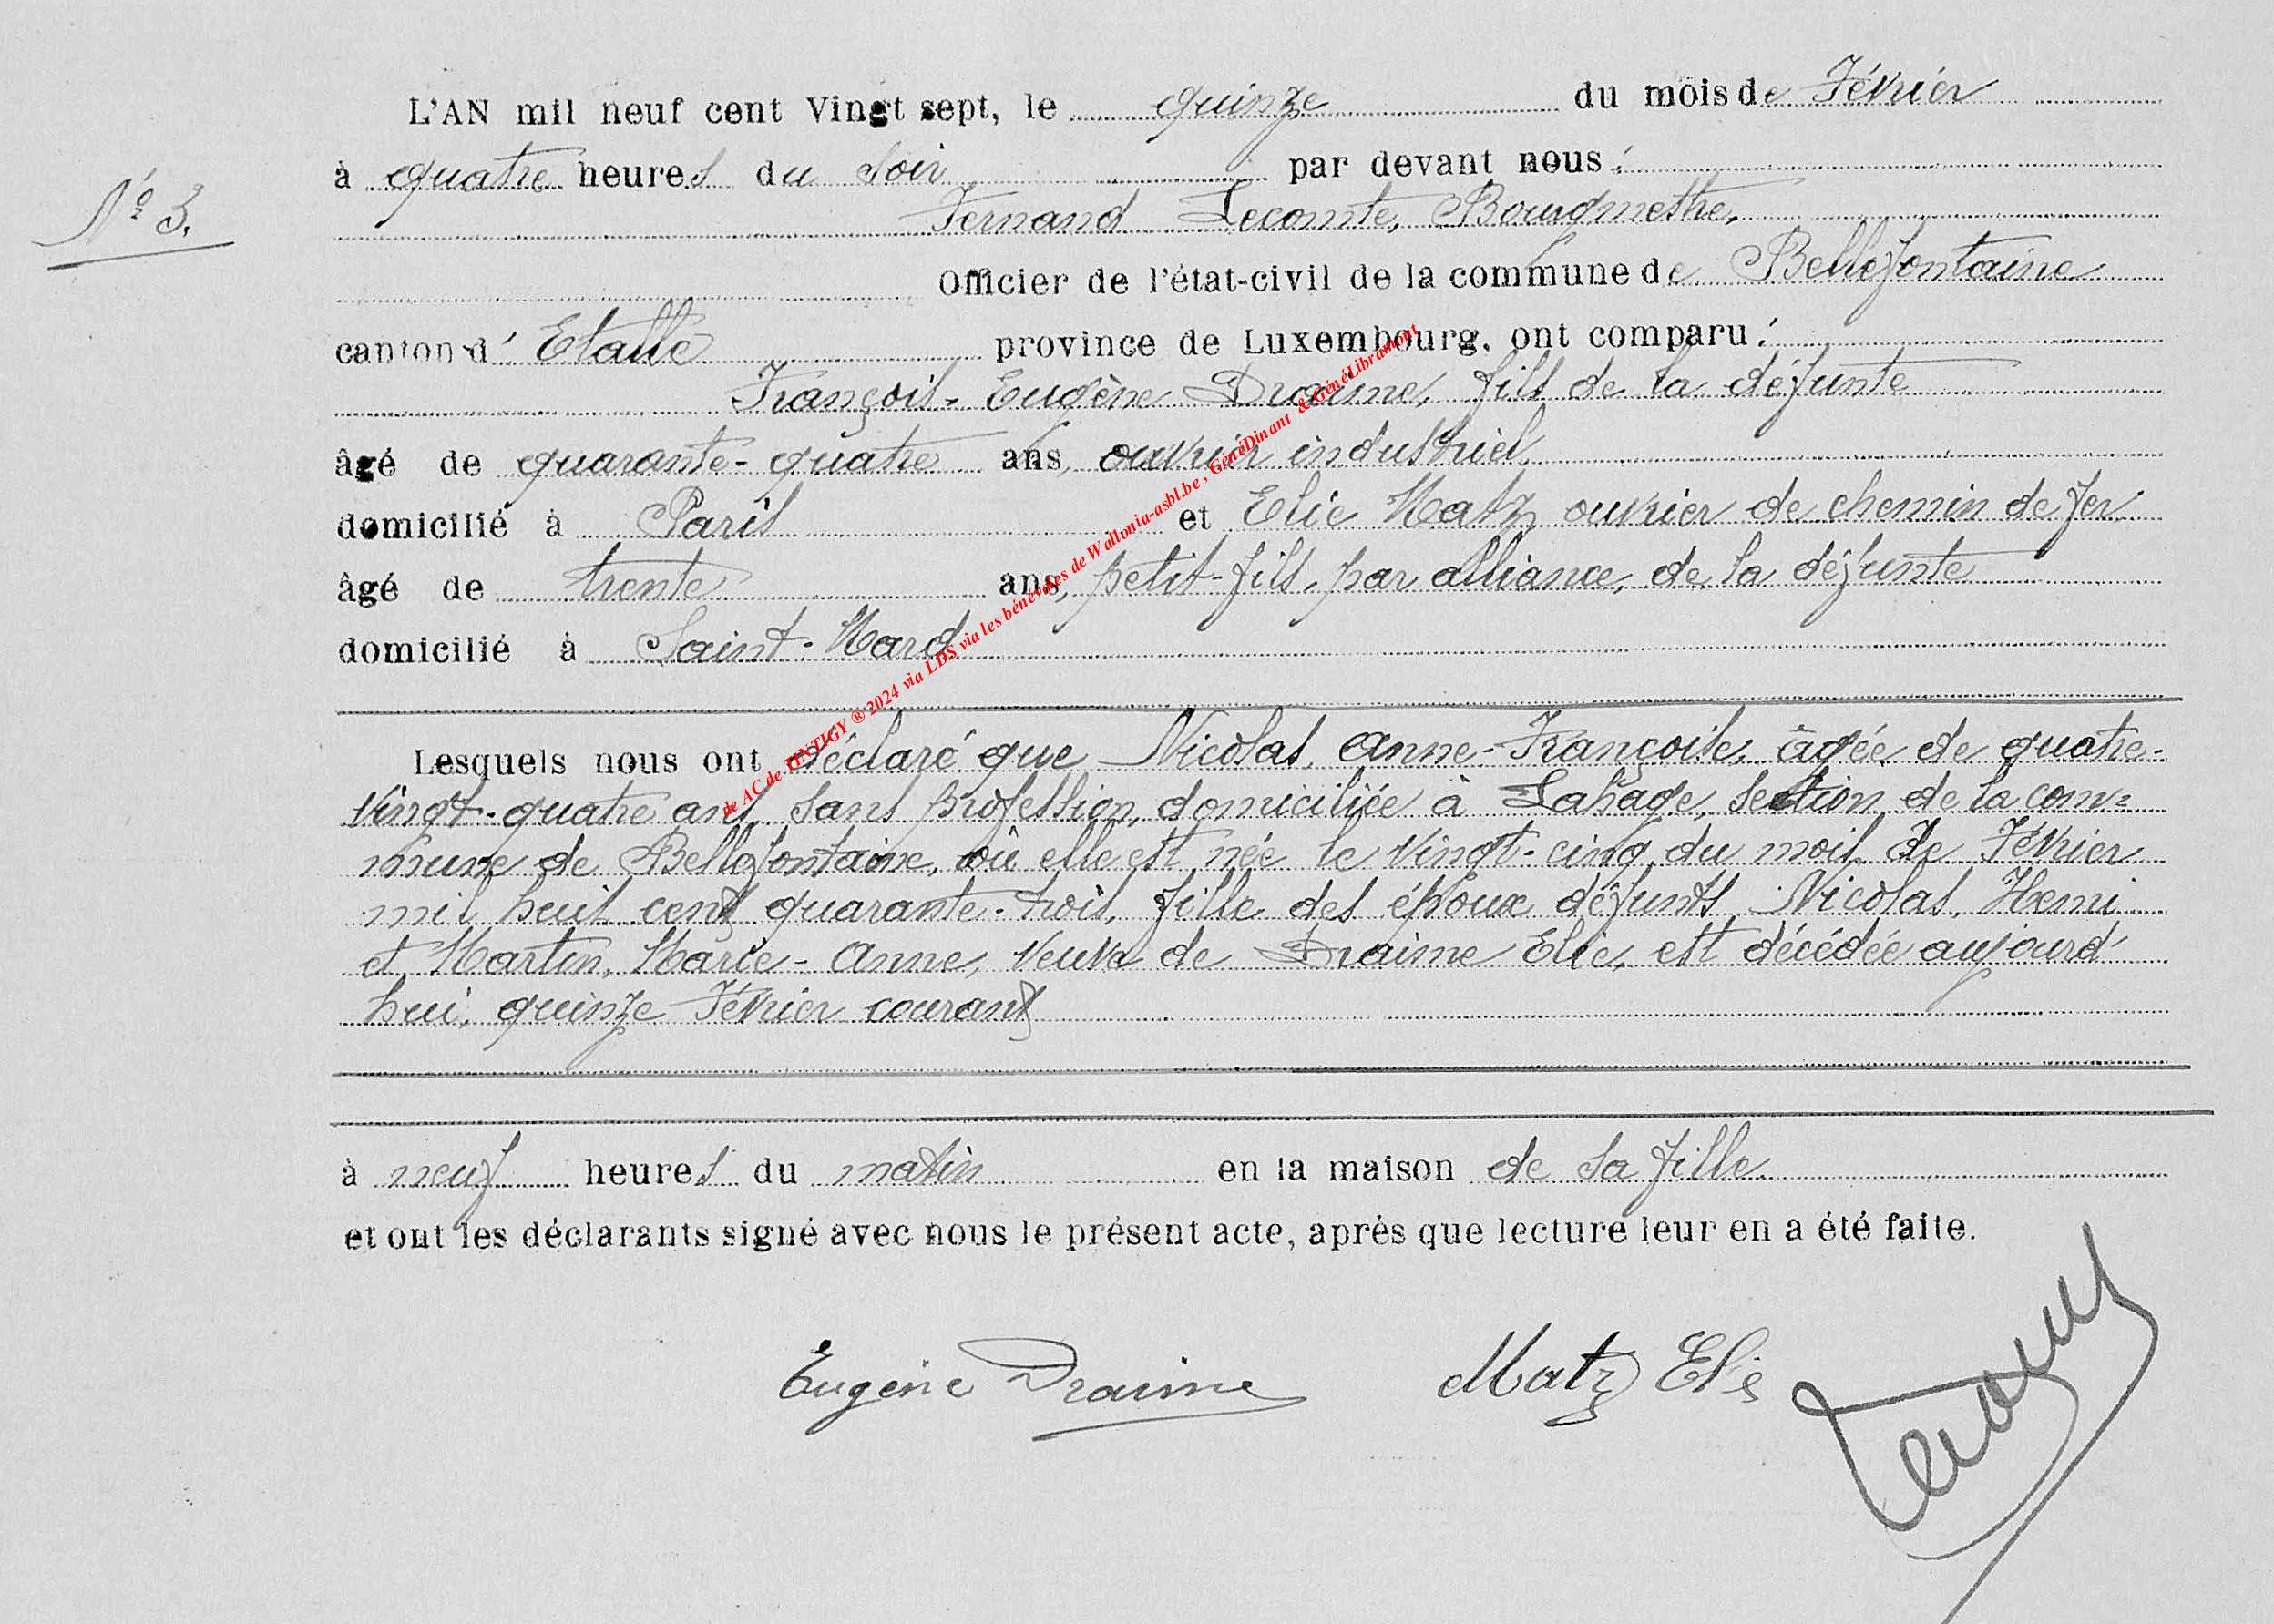 L'AN mil neuf cent Vingt sept, le quinze du mois de Février
à quatre heures du soir par devant nous :
N° 3.
Fernand Lecomte, Bourgmestre,
Officier de l'état-civil de la commune de Bellefontaine
canton d' Etalle province de Luxembourg, ont comparu :
François-Eugène Draime, fils de la défunte
âgé de quarante-quatre ans, ouvrier industriel,
domicilié à Paris et Elie Matz, ouvrier de chemin de fer
âgé de trente ans, petit-fils, par alliance, de la défunte
domicilié à Saint-Mard
Lesquels nous ont déclaré que Nicolas, Anne-Françoise, âgée de quatre-
vingt-quatre ans, sans profession, domiciliée à Lahage, section de la com=
mune de Bellefontaine, où elle est née le vingt-cinq du mois de Février
mil huit cent quarante-trois, fille des époux défunts Nicolas, Henri
et Martin, Marie-Anne, veuve de Draime Elie, est décédée aujourd'
hui, quinze Février courant
à neuf heures du matin en la maison de sa fille.
et ont les déclarants signé avec nous le présent acte, après que lecture leur en a été faite.
Eugène Draime Matz Elie
de AC de TINTIGY ® 2024 via LDS via les bénévoles de Wallonia-asbl.be, GénéDinant & GénéLibramont